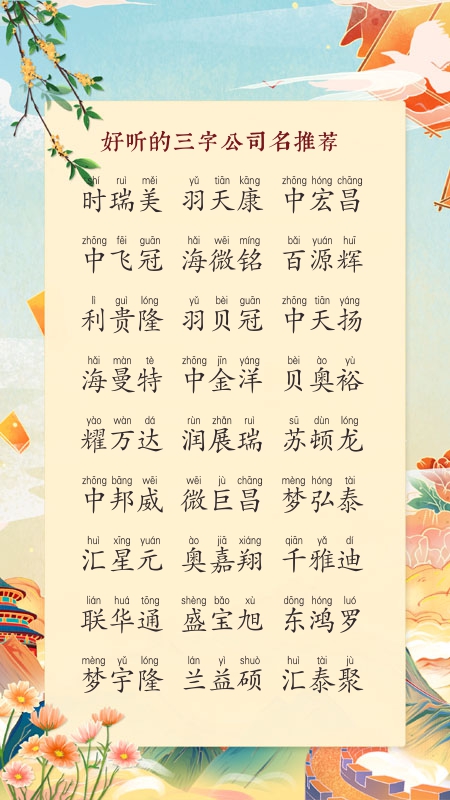 好听的三字公司名推荐
shí ruì měi yǔ tiān kāng zhōng hóng chāng
时瑞美 羽天康 中宏昌
zhōng fēi guān hǎi wēi míng bǎi yuán huī
中飞冠 海微铭 百源辉
lì guì lóng yǔ bèi guān zhōng tiān yáng
利贵隆 羽贝冠 中天扬
hǎi màn tè zhōng jīn yáng bèi ào yù
海曼特 中金洋 贝奥裕
yào wàn dá rùn zhǎn ruì sū dùn lóng
耀万达 润展瑞 苏顿龙
zhōng bāng wēi wēi jù chāng mèng hóng tài
中邦威 微巨昌 梦弘泰
huì xīng yuán ào jiā xiáng qiān yǎ dí
汇星元 奥嘉翔 千雅迪
lián huá tōng shèng bǎo xù dōng hóng luó
联华通 盛宝旭 东鸿罗
mèng yǔ lóng lán yì shuò huì tài jù
梦宇隆 兰益硕 汇泰聚